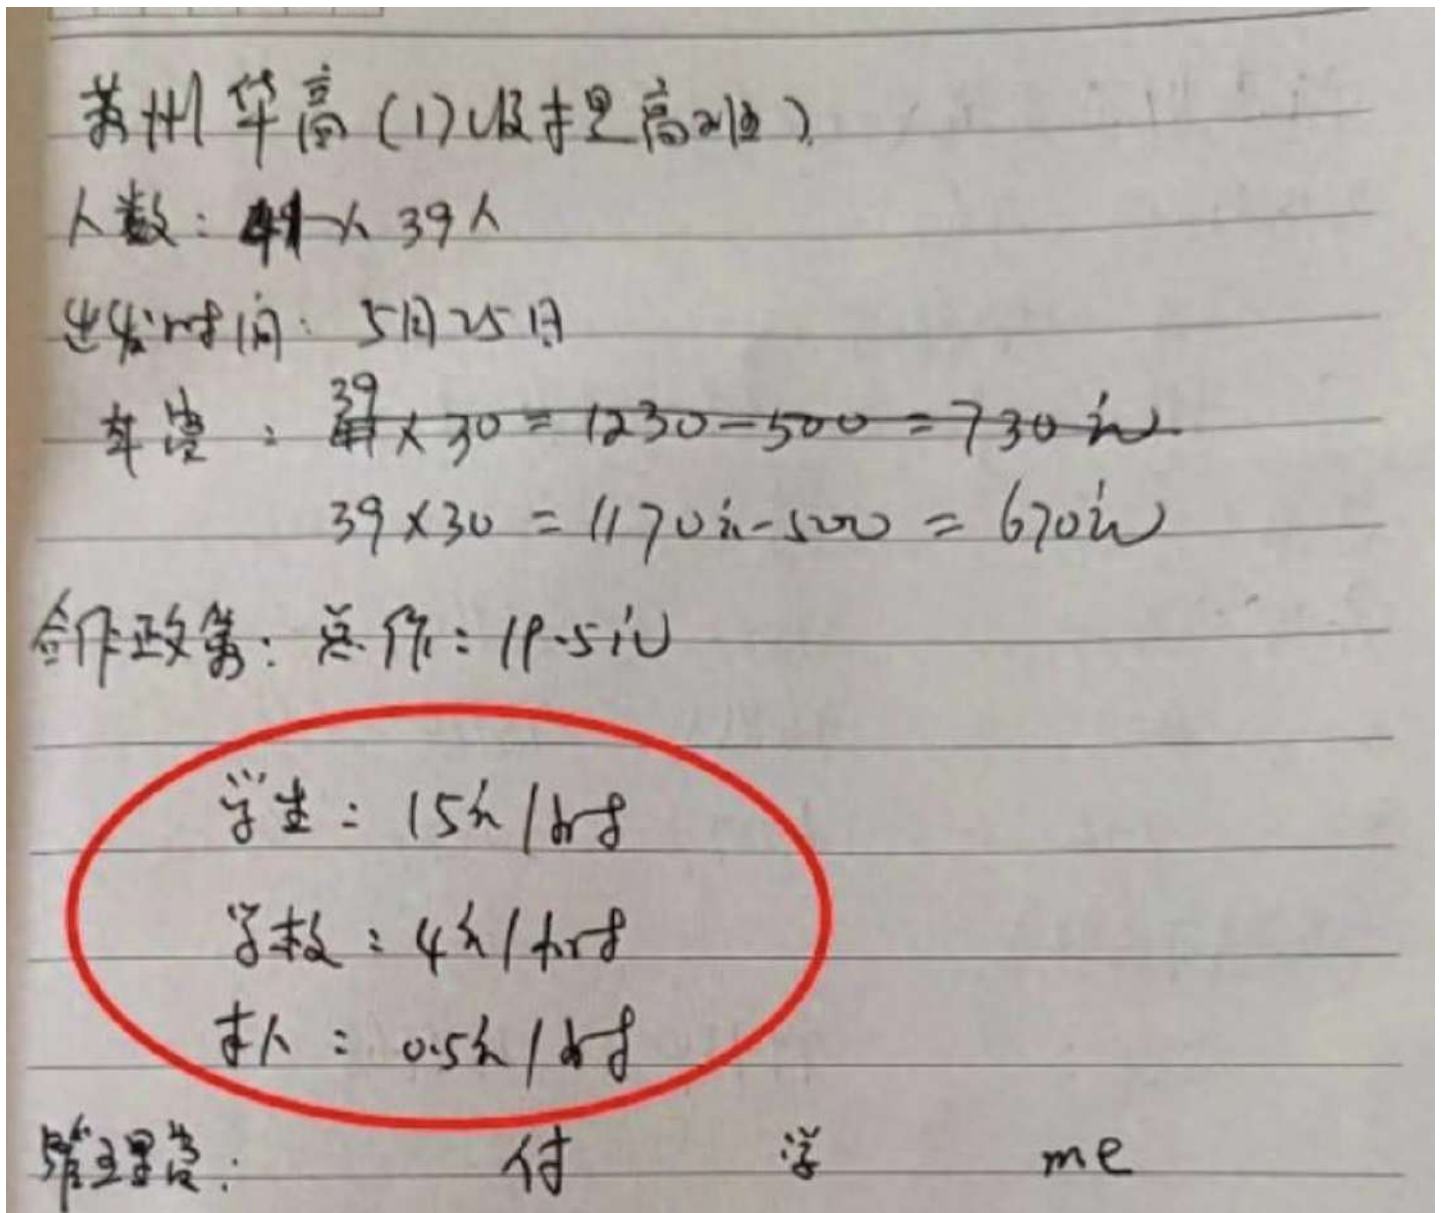 苏州华高(1)级技 高
人数: 39人
出发时间: 5月25日
车费: 39 × 30 = 1230-500 = 730元
39×30 = 1170元-500 = 670元
合作政策: 总价: 19.5元
学生: 15元/时
学校: 4元/时
本人: 0.5元/时
管理费: 付 学 me